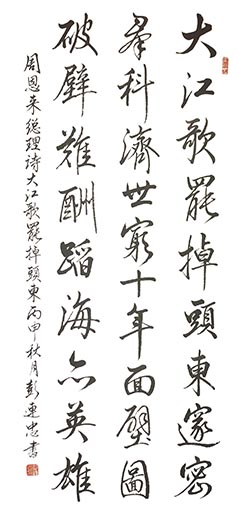 大江歌罷掉頭東邃密
羣科濟世窮十年面壁圖
破壁難酬蹈海亦英雄
周恩来總理詩大江歌罷掉頭東丙申秋月彭連忠書